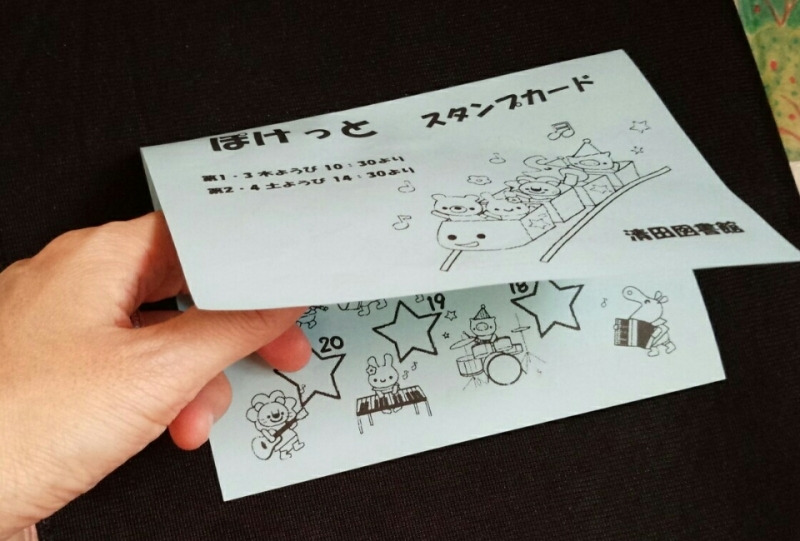 ぽけっと スタンプカード
第1・3 木ようび 10：30より
第2・4 土ようび 14：30より
清田図書館
19
18
20